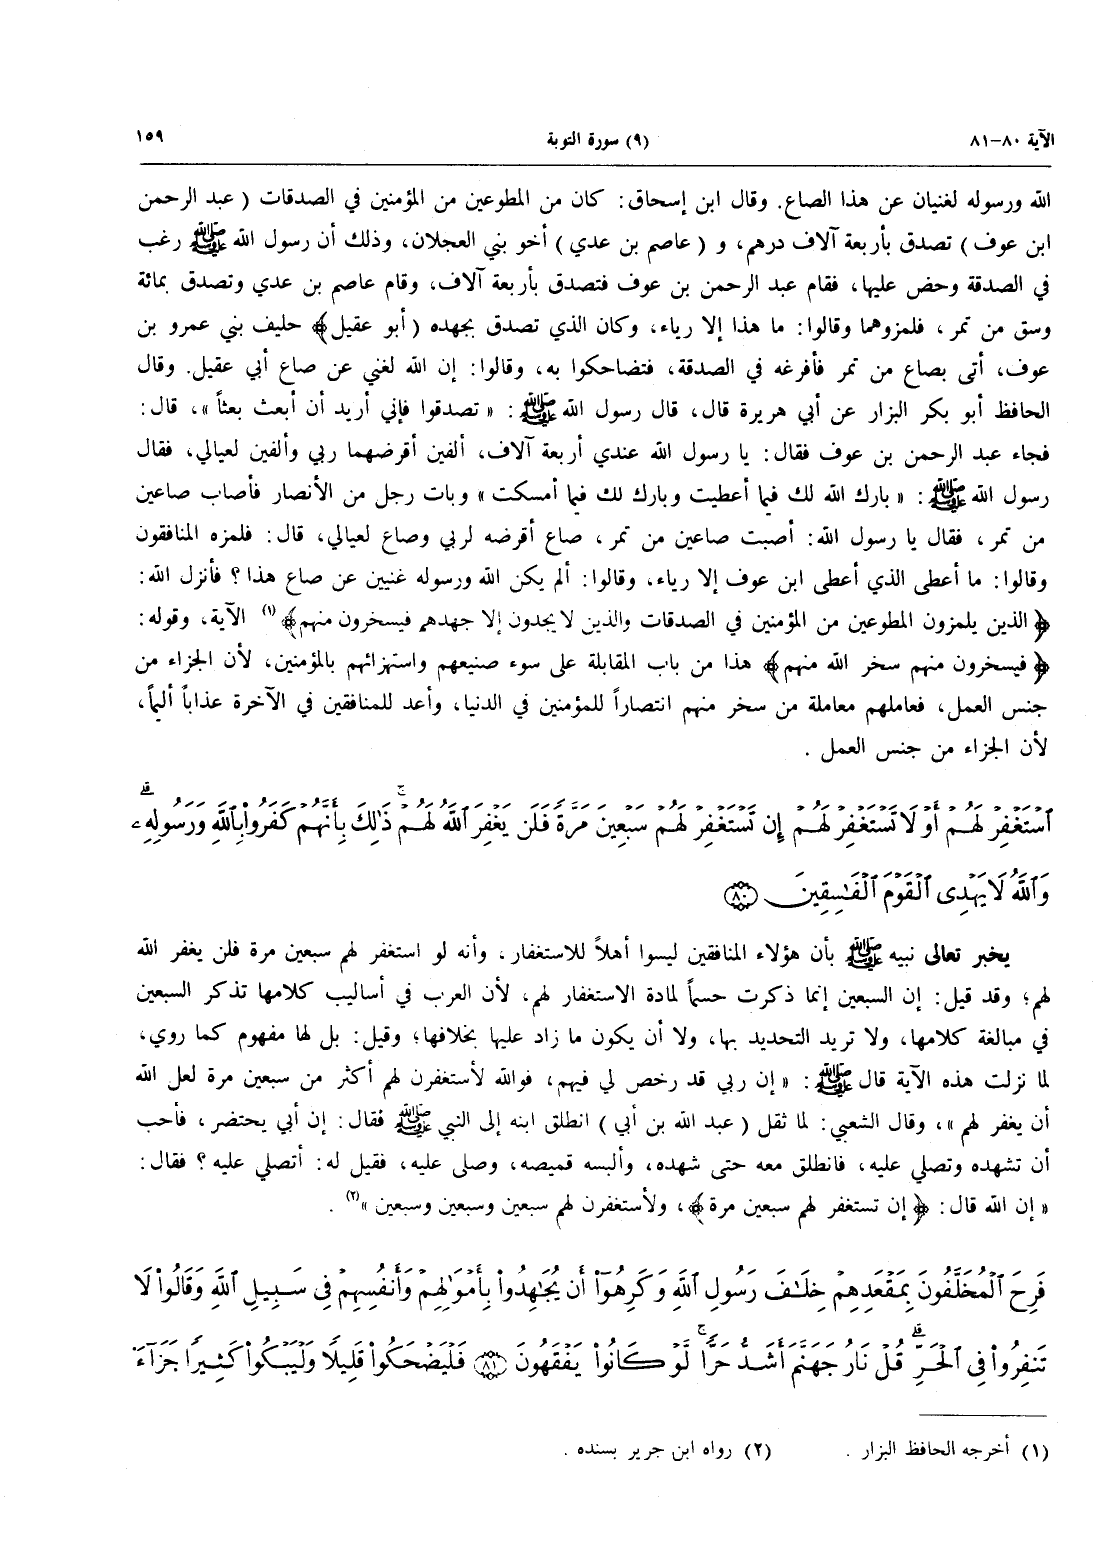 الآية ٨٠-٨١ (٩) سورة التوبة ١٥٩
الله ورسوله لغنيان عن هذا الصاع. وقال ابن إسحاق: كان من المطوعين من المؤمنين في الصدقات ( عبد الرحمن
ابن عوف ) تصدق بأربعة آلاف درهم، و ( عاصم بن عدي ) أخو بني العجلان، وذلك أن رسول الله ﷺ رغب
في الصدقة وحض عليها، فقام عبد الرحمن بن عوف فتصدق بأربعة آلاف، وقام عاصم بن عدي وتصدق بمائة
وسق من تمر، فلمزوهما وقالوا: ما هذا إلا رياء، وكان الذي تصدق بجهده ( أبو عقيل﴾ حليف بني عمرو بن
عوف، أتى بصاع من تمر فأفرغه في الصدقة، فتضاحكوا به، وقالوا: إن الله لغني عن صاع أبي عقيل. وقال
الحافظ أبو بكر البزار عن أبي هريرة قال، قال رسول الله ﷺ: « تصدقوا فإني أريد أن أبعث بعثاً »، قال:
فجاء عبد الرحمن بن عوف فقال: يا رسول الله عندي أربعة آلاف، ألفين أقرضهما ربي وألفين لعيالي، فقال
رسول الله ﷺ: « بارك الله لك فيما أعطيت وبارك لك فيما أمسكت » وبات رجل من الأنصار فأصاب صاعين
من تمر، فقال يا رسول الله: أصبت صاعين من تمر، صاع أقرضه لربي وصاع لعيالي، قال: فلمزه المنافقون
وقالوا: ما أعطى الذي أعطى ابن عوف إلا رياء، وقالوا: ألم يكن الله ورسوله غنيين عن صاع هذا؟ فأنزل الله:
﴿ الذين يلمزون المطوعين من المؤمنين في الصدقات والذين لا يجدون إلا جهدهم فيسخرون منهم﴾(١) الآية، وقوله:
﴿ فيسخرون منهم سخر الله منهم﴾ هذا من باب المقابلة على سوء صنيعهم واستهزائهم بالمؤمنين، لأن الجزاء من
جنس العمل، فعاملهم معاملة من سخر منهم انتصاراً للمؤمنين في الدنيا، وأعد للمنافقين في الآخرة عذاباً أليماً،
لأن الجزاء من جنس العمل .
ٱسْتَغْفِرْ لَهُمْ أَوْ لَا تَسْتَغْفِرْ لَهُمْ إِن تَسْتَغْفِرْ لَهُمْ سَبْعِينَ مَرَّةً فَلَن يَغْفِرَ ٱللَّهُ لَهُمْ ۚ ذَٰلِكَ بِأَنَّهُمْ كَفَرُوا۟ بِٱللَّهِ وَرَسُولِهِۦ ۗ
وَٱللَّهُ لَا يَهْدِى ٱلْقَوْمَ ٱلْفَـٰسِقِينَ ﴿٨٠﴾
يخبر تعالى نبيه ﷺ بأن هؤلاء المنافقين ليسوا أهلاً للاستغفار، وأنه لو استغفر لهم سبعين مرة فلن يغفر الله
لهم؛ وقد قيل: إن السبعين إنما ذكرت حسماً لمادة الاستغفار لهم، لأن العرب في أساليب كلامها تذكر السبعين
في مبالغة كلامها، ولا تريد التحديد بها، ولا أن يكون ما زاد عليها بخلافها؛ وقيل: بل لها مفهوم كما روي،
لما نزلت هذه الآية قال ﷺ: « إن ربي قد رخص لي فيهم، فوالله لأستغفرن لهم أكثر من سبعين مرة لعل الله
أن يغفر لهم »، وقال الشعبي: لما ثقل ( عبد الله بن أبي ) انطلق ابنه إلى النبي ﷺ فقال: إن أبي يحتضر، فأحب
أن تشهده وتصلي عليه، فانطلق معه حتى شهده، وألبسه قميصه، وصلى عليه، فقيل له: أتصلي عليه؟ فقال:
« إن الله قال: ﴿ إن تستغفر لهم سبعين مرة﴾، ولأستغفرن لهم سبعين وسبعين وسبعين »(٢) .
فَرِحَ ٱلْمُخَلَّفُونَ بِمَقْعَدِهِمْ خِلَـٰفَ رَسُولِ ٱللَّهِ وَكَرِهُوٓا۟ أَن يُجَـٰهِدُوا۟ بِأَمْوَٰلِهِمْ وَأَنفُسِهِمْ فِى سَبِيلِ ٱللَّهِ وَقَالُوا۟ لَا
تَنفِرُوا۟ فِى ٱلْحَرِّ ۗ قُلْ نَارُ جَهَنَّمَ أَشَدُّ حَرًّا ۚ لَّوْ كَانُوا۟ يَفْقَهُونَ ﴿٨١﴾ فَلْيَضْحَكُوا۟ قَلِيلًا وَلْيَبْكُوا۟ كَثِيرًا جَزَآءً
(١) أخرجه الحافظ البزار . (٢) رواه ابن جرير بسنده .